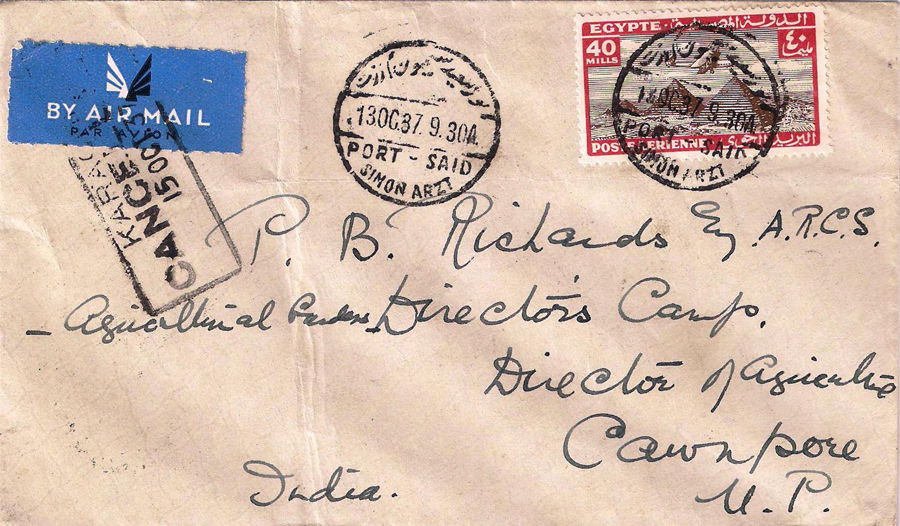 BY AIR MAIL
PAR AVION
KARACHI
CANCE
15 OCT
بورسعيد سيمون ارزت
13 OC 37 9.30A
PORT - SAID
SIMON ARZT
الدولة المصرية
EGYPTE
40
MILLS
٤٠
مليما
POSTE AERIENNE
البريد الجوى
بورسعيد سيمون ارزت
13 OC 37 9.30A
PORT - SAID
SIMON ARZT
P. B. Richards Esq. A.R.C.S.
- Agricultural Gardens, Director's Camp.
Director of Agriculture
Cawnpore
India.
U.P.